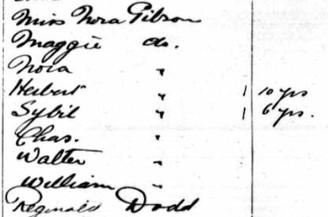 Miss Nora Gibson
Maggie do.
Nora "
Herbert " 1 10 yrs
Sybil " 1 6 yrs.
Chas. "
Walter "
William "
Reginald Dodd